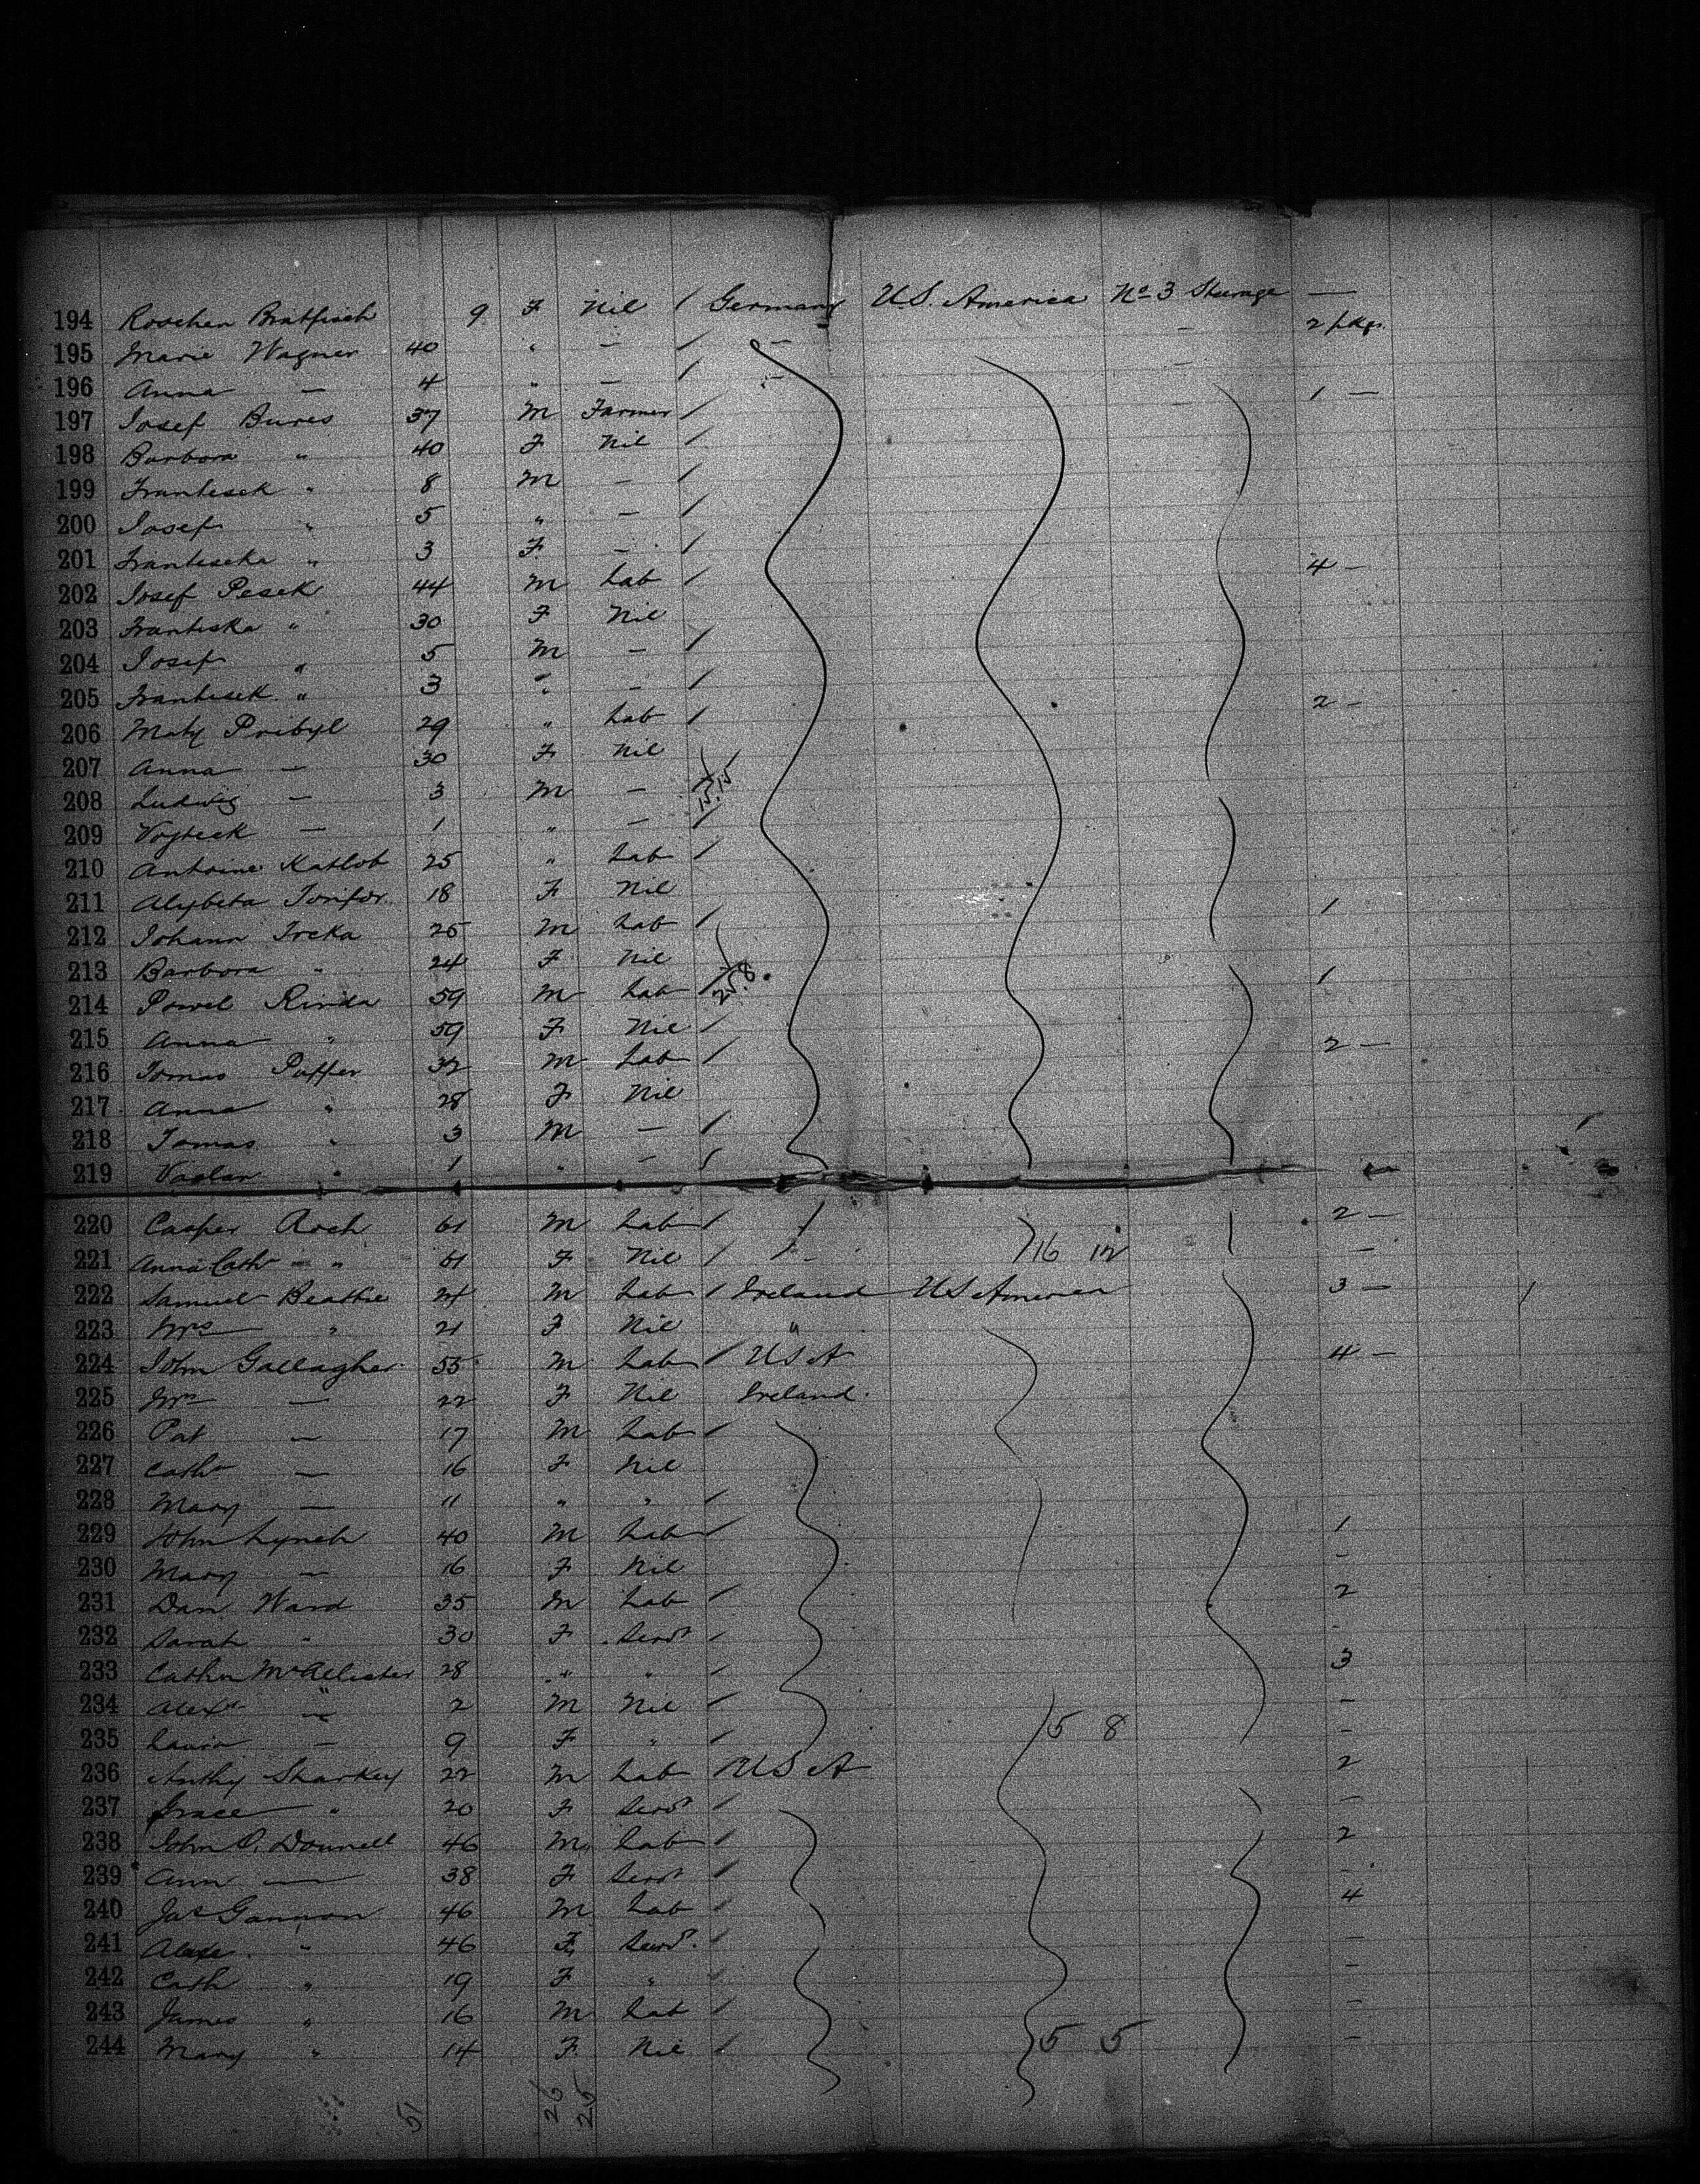 194 Roschen Bratfisch 9 F Nil / Germany U.S. America No 3 Steerage —
195 Marie Wagner 40 " — / — — 2 pkgs.
196 Anna — 4 " — / — —
197 Josef Bures 37 M Farmer / — 1 —
198 Barbora " 40 F Nil /
199 Frantisek " 8 M — /
200 Josef " 5 " — /
201 Frantiseka " 3 F — /
202 Josef Pesek 44 M Lab / 4 —
203 Frantiska " 30 F Nil
204 Josef " 5 M — /
205 Frantisek " 3 " — /
206 Maty Pribyl 29 " Lab / 2 —
207 Anna — 30 F Nil
208 Ludwig — 3 M — / 15.15
209 Vojteck — 1 " — /
210 Antoine Katlob 25 " Lab /
211 Alzbeta 18 F Nil
212 Johann Ircka 25 M Lab / 1
213 Barbora " 24 F Nil
214 Pawel Rinda 59 M Lab / 25.8. 1
215 Anna " 59 F Nil /
216 Tomas Puffer 32 M Lab / 2 —
217 Anna " 28 F Nil
218 Tomas " 3 M — /
219 Vaslav " 1 " — /
220 Casper Roch 61 M Lab / / 2 —
221 Anna Cath " 61 F Nil / / — 16 12 —
222 Samuel Beattie 24 M Lab / Ireland US America 3 —
223 Mrs " 21 F Nil "
224 John Gallagher 55 M Lab / USA 4 —
225 Mrs — 22 F Nil Ireland.
226 Pat — 17 M Lab /
227 Cath — 16 F Nil
228 Mary — 11 " " /
229 John Lynch 40 M Lab / 1
230 Mary — 16 F Nil —
231 Dan Ward 35 M Lab / 2
232 Sarah " 30 F Servt / -
233 Cathn McAllister 28 " " / 3
234 Alexr " 2 M Nil / —
235 — 9 F " / 5 8 -
236 Anthy Sharkey 22 M Lab / USA 2
237 Grace " 20 F Servt / —
238 John O. Donnell 46 M Lab / 2
239 Ann — 38 F Servt / -
240 Jas Gannon 46 M Lab / 4
241 " 46 F Servt. / —
242 Cath " 19 F " / —
243 James " 16 M Lab / —
244 Mary " 14 F Nil / 5 5 —
51 26 25